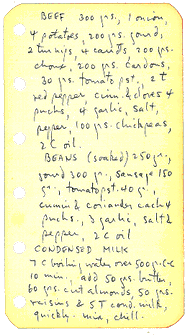 BEEF 300 grs, 1 onion,
4 potatoes, 200 grs. gourd,
2 turnips 4 carrots 200 grs.
choux, 200 grs. cardons,
30 grs. tomato pst. 2 t
red pepper cinn. & cloves 4
pnchs, 4 garlic, salt,
pepper, 100 grs. chickpeas,
2 C oil.
BEANS (soaked) 250 gr.,
gourd 300 gr., sausage 150
gr., tomato pst. 40 gr.,
cumin & coriander each 4
pnchs, 3 garlic, salt &
pepper, 2 C oil
CONDENSED MILK
7 C boiling water over 500 gr.
10 min., add 50 grs. butter,
60 grs. cut almonds, 50 grs.
raisins & 5 T cond. milk,
quickly mix, chill.